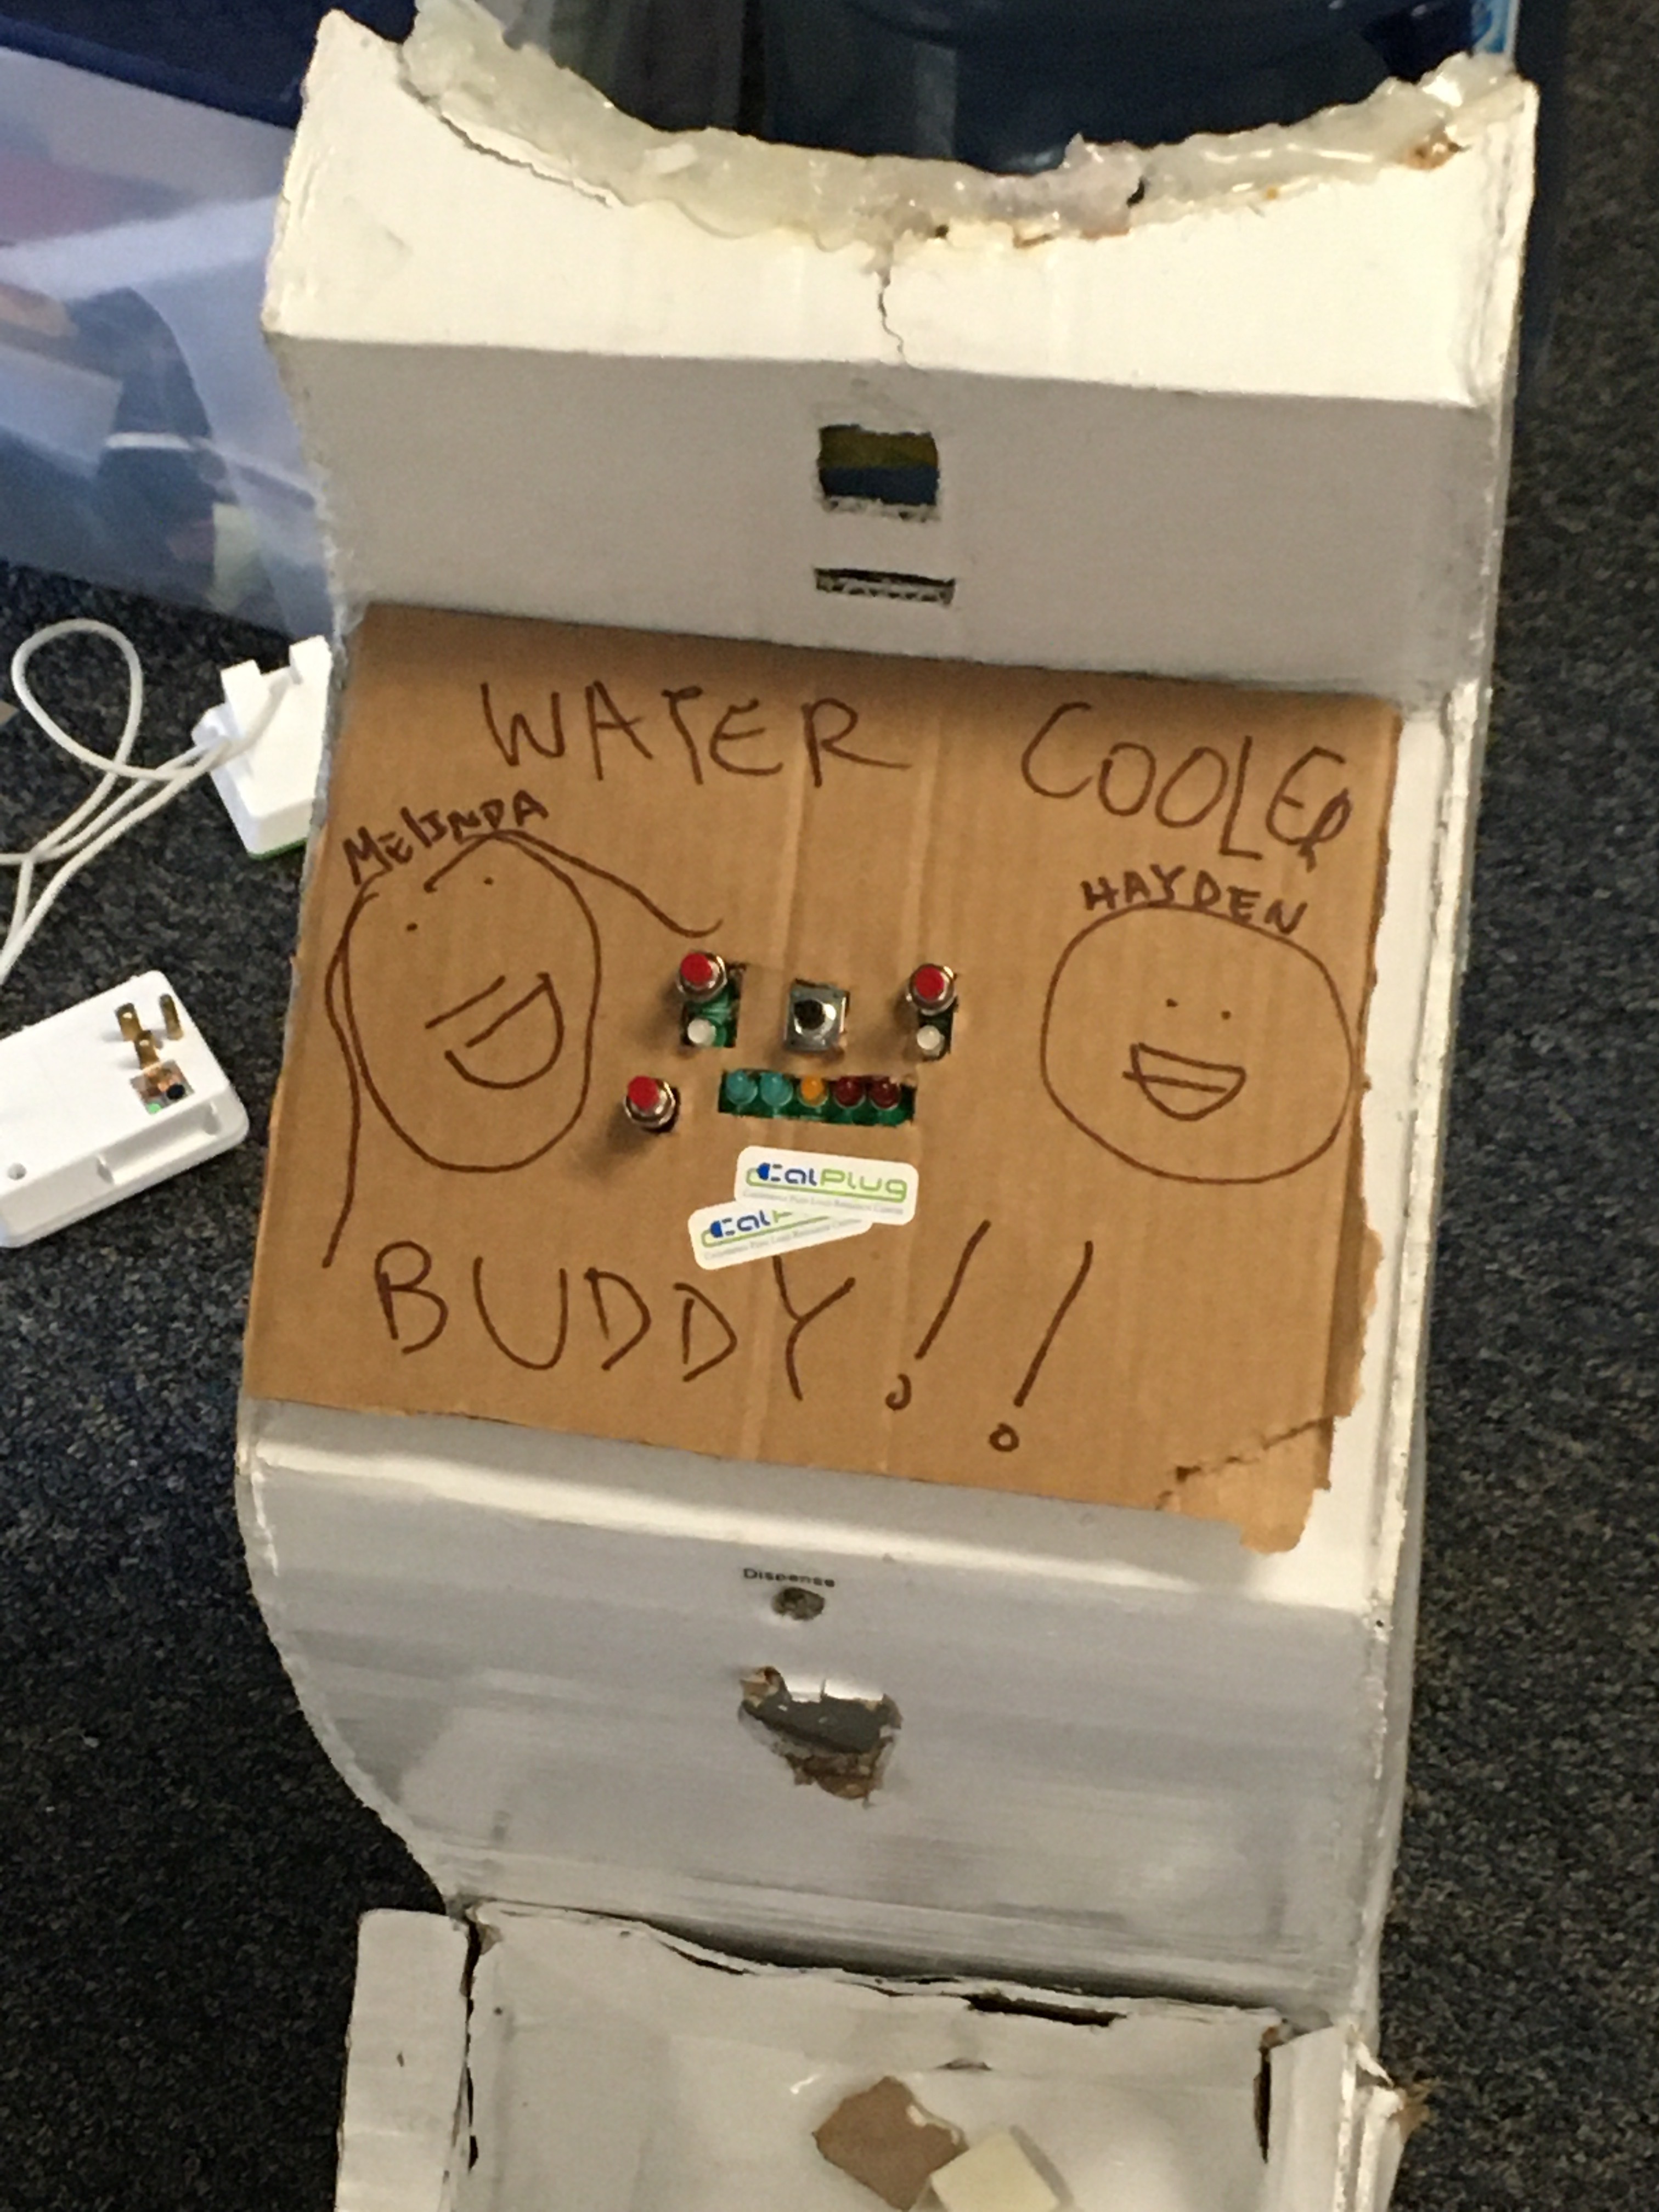 WATER COOLER
MELINDA
HAYDEN
CalPlug
California Plug Load Research Center
Cal
California Plug Load Research Center
BUDDY!!
Dispense